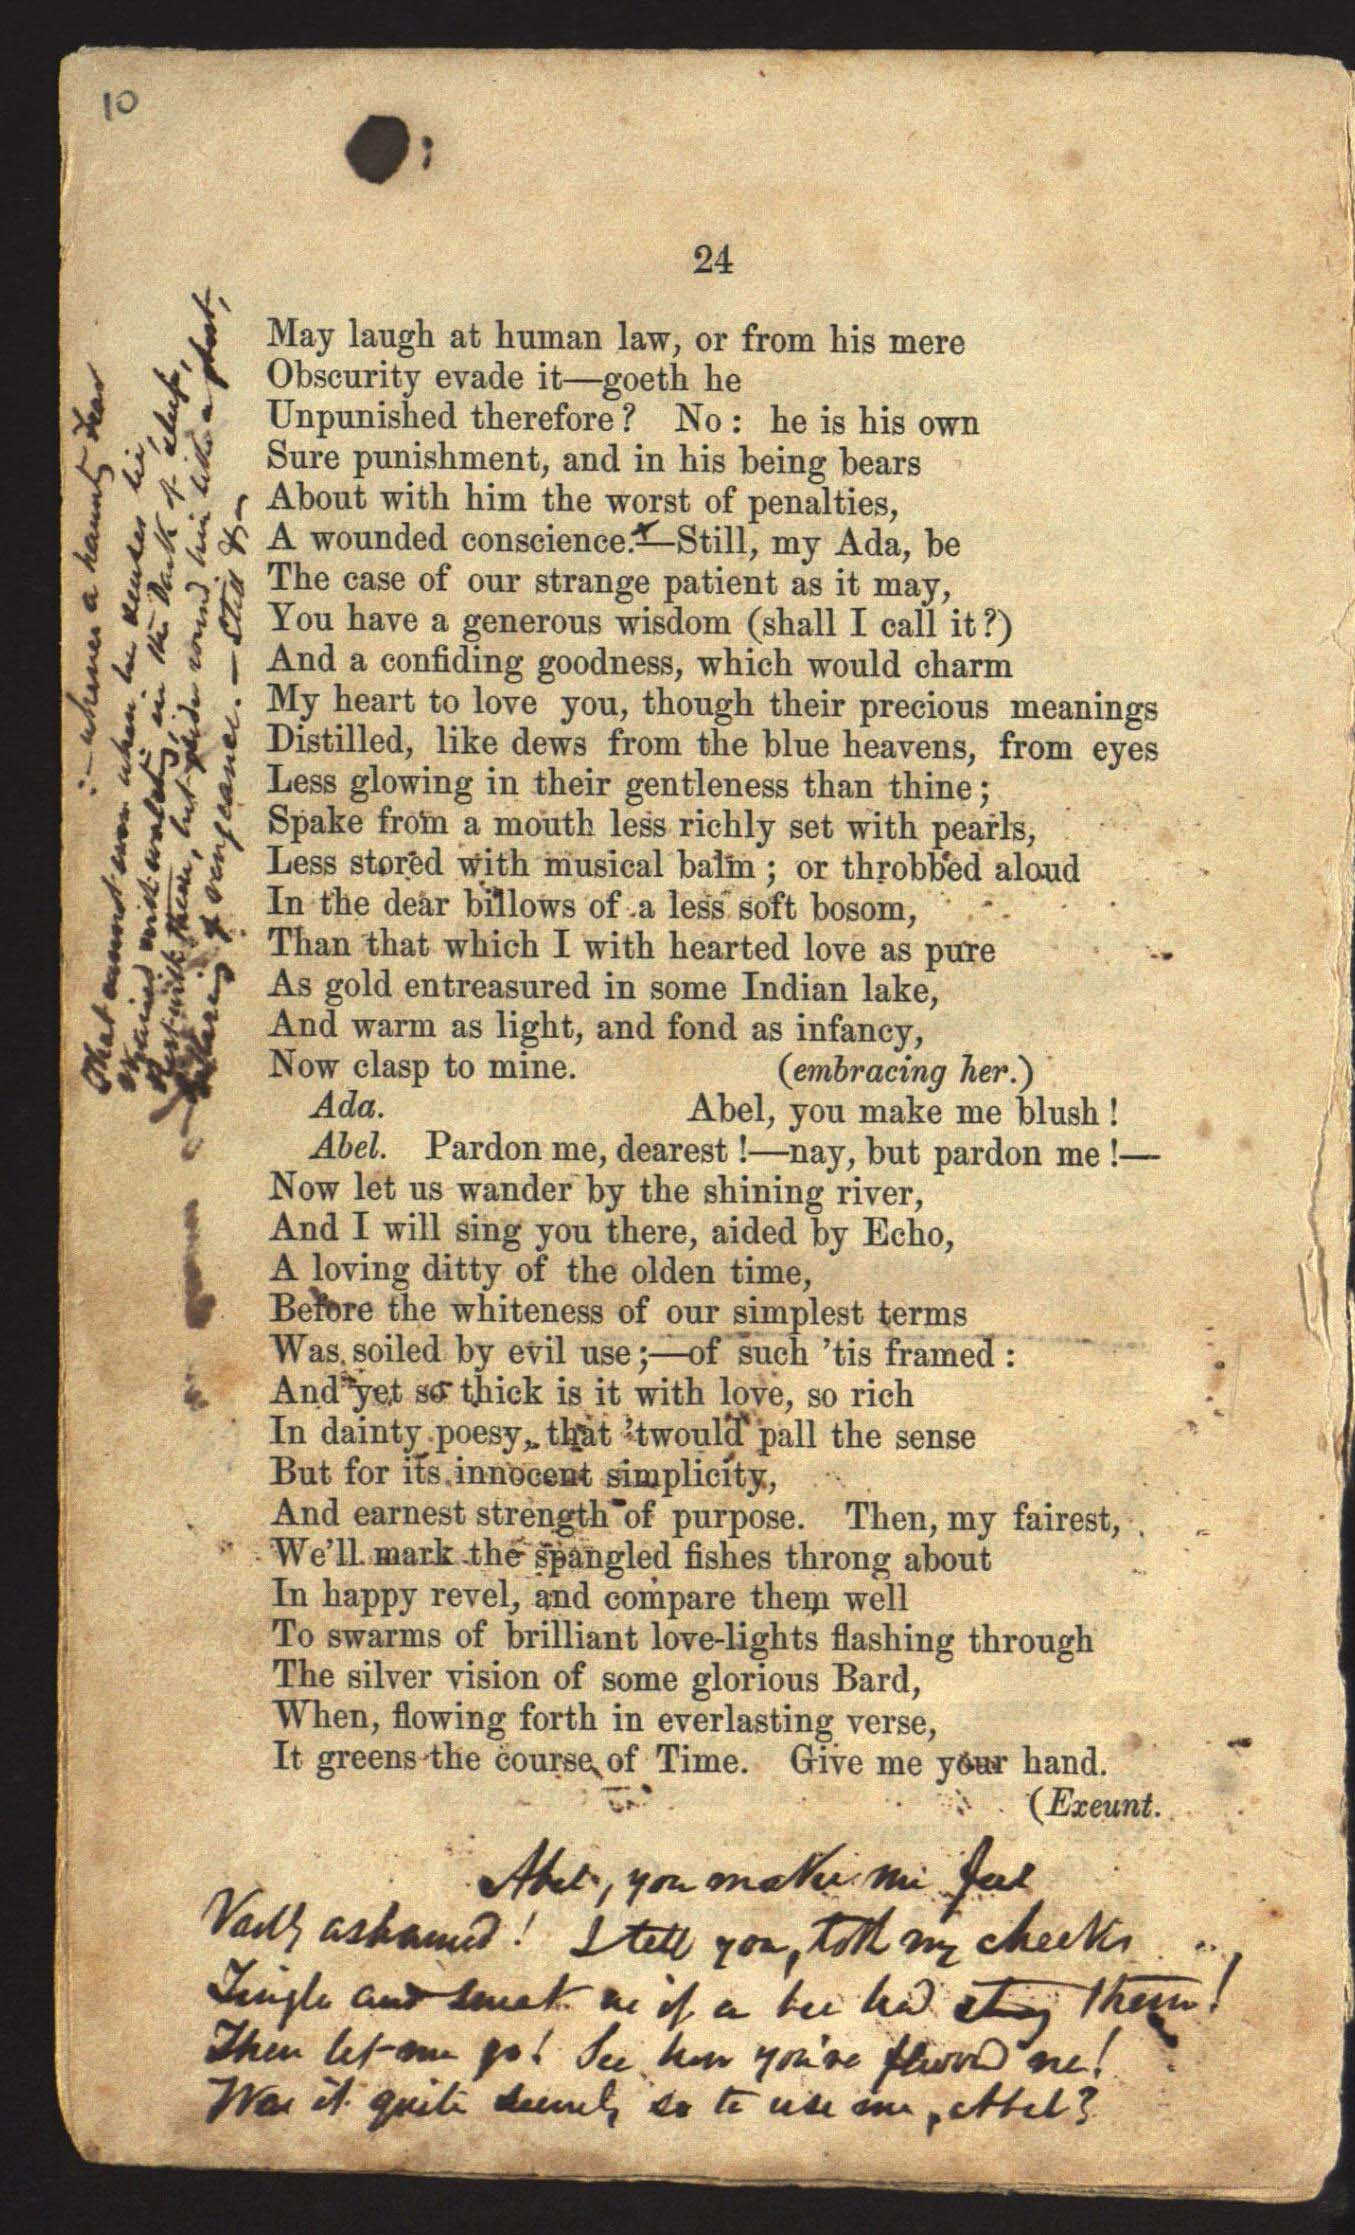 10
24
May laugh at human law, or from his mere
Obscurity evade it—goeth he
Unpunished therefore? No: he is his own
Sure punishment, and in his being bears
About with him the worst of penalties,
A wounded conscience.x—Still, my Ada, be
The case of our strange patient as it may,
You have a generous wisdom (shall I call it?)
And a confiding goodness, which would charm
My heart to love you, though their precious meanings
Distilled, like dews from the blue heavens, from eyes
Less glowing in their gentleness than thine;
Spake from a mouth less richly set with pearls,
Less stored with musical balm; or throbbed aloud
In the dear billows of a less soft bosom,
Than that which I with hearted love as pure
As gold entreasured in some Indian lake,
And warm as light, and fond as infancy,
Now clasp to mine. (embracing her.)
Ada. Abel, you make me blush!
Abel. Pardon me, dearest!—nay, but pardon me!—
Now let us wander by the shining river,
And I will sing you there, aided by Echo,
A loving ditty of the olden time,
Before the whiteness of our simplest terms
Was soiled by evil use;—of such 'tis framed:
And yet so thick is it with love, so rich
In dainty poesy, that 'twould pall the sense
But for its innocent simplicity,
And earnest strength of purpose. Then, my fairest,
We'll mark the spangled fishes throng about
In happy revel, and compare them well
To swarms of brilliant love-lights flashing through
The silver vision of some glorious Bard,
When, flowing forth in everlasting verse,
It greens the course of Time. Give me your hand.
(Exeunt.
:—whence a haunting fear
That cannot when he lie,
in the dark of sleep,
but round him like a ghost,
of vengeance.—Still
Abel, you make me feel
ashamed! I tell you, both my cheeks
Tingle and smart as if a bee had stung them!
Then let me go! See how you've me!
Was it quite seemly so to use me, Abel?